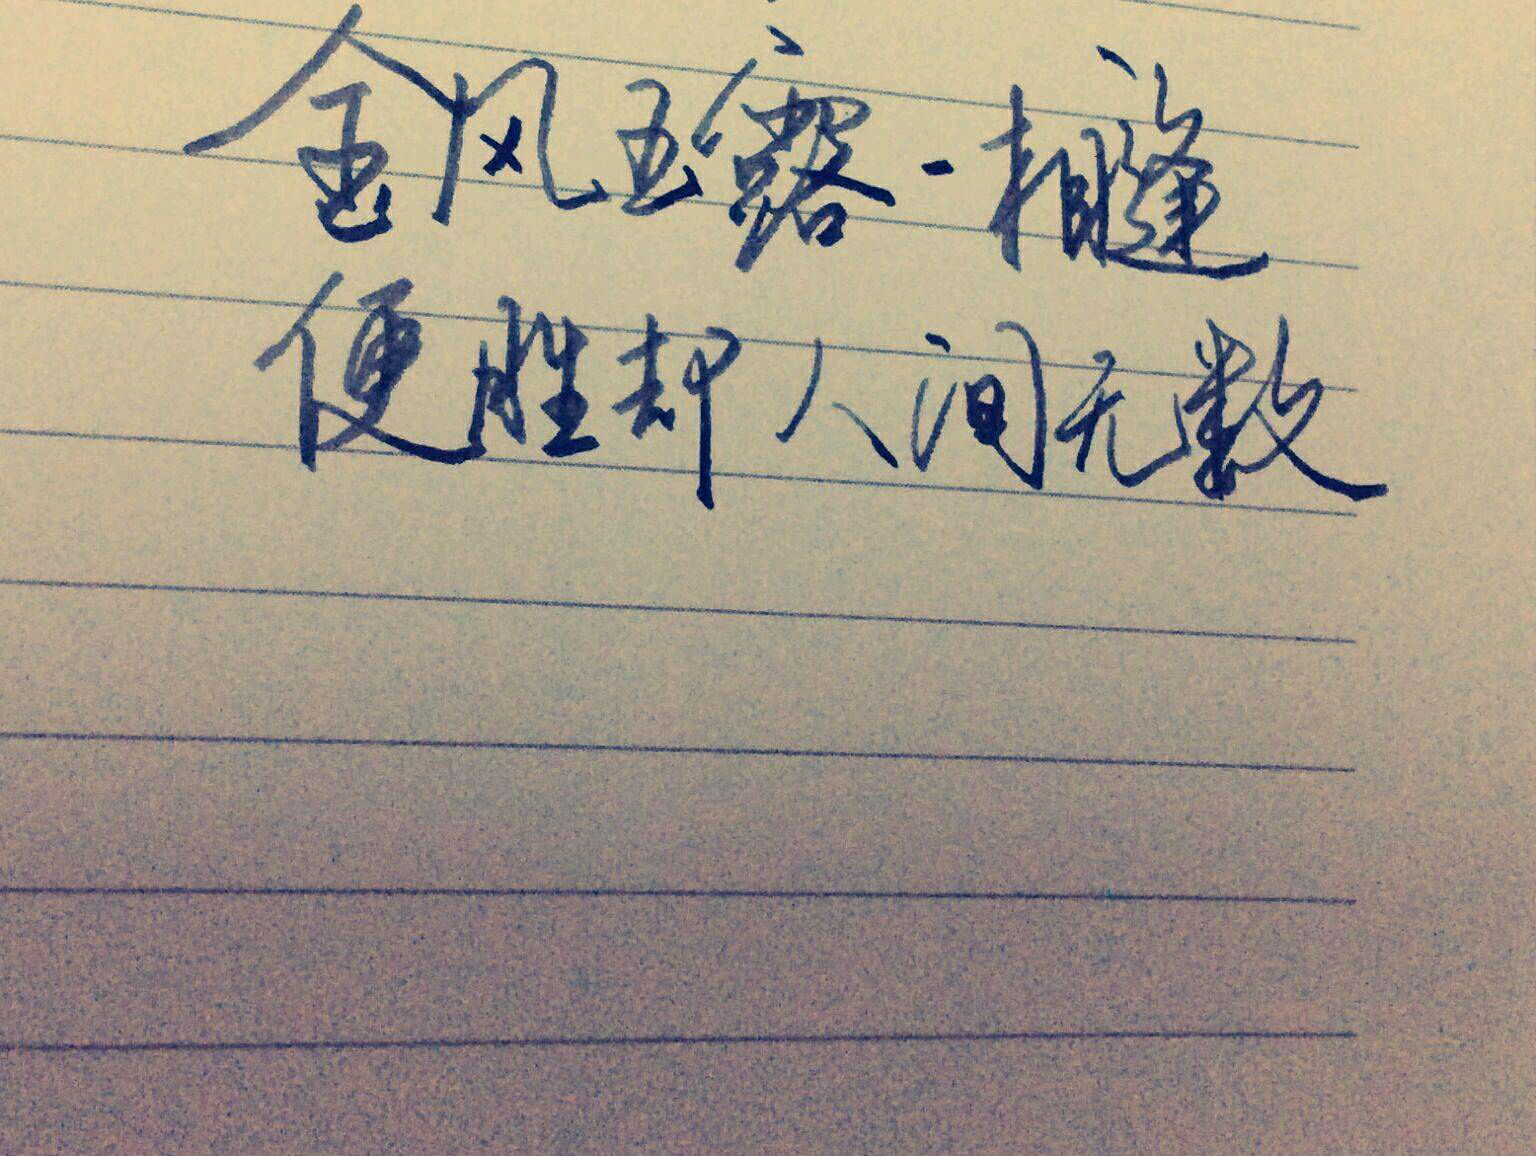 金风玉露一相逢
便胜却人间无数